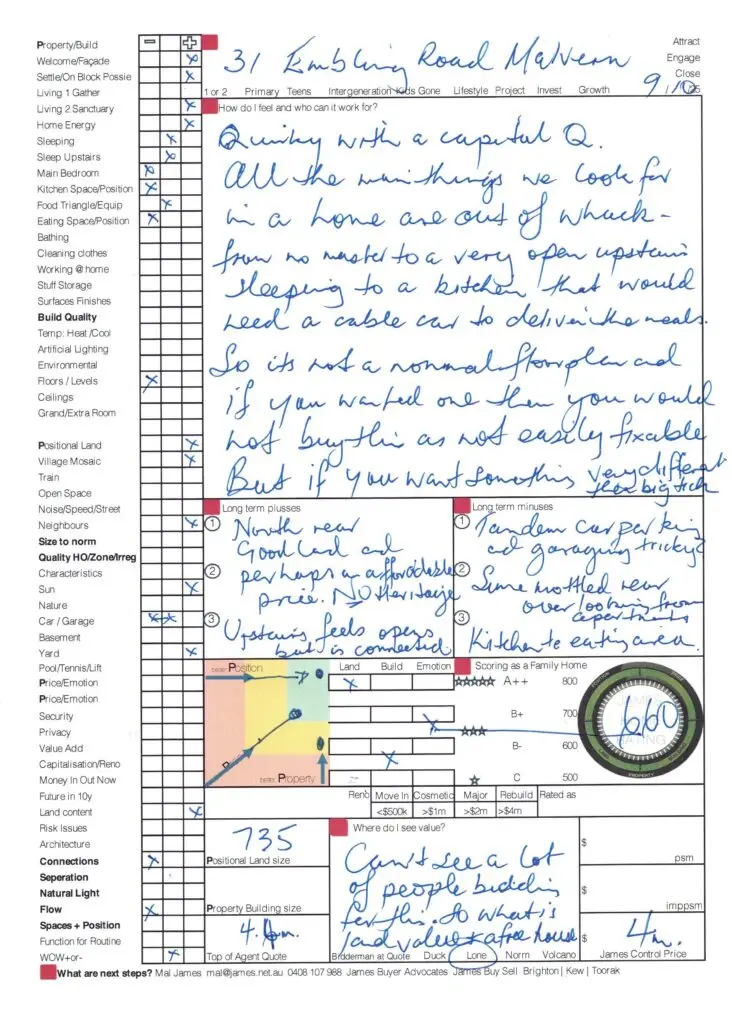 Property/Build
Welcome/Façade
Settle/On Block Possie
Living 1 Gather
Living 2 Sanctuary
Home Energy
Sleeping
Sleep Upstairs
Main Bedroom
Kitchen Space/Position
Food Triangle/Equip
Eating Space/Position
Bathing
Cleaning clothes
Working @ home
Stuff Storage
Surfaces Finishes
Build Quality
Temp: Heat /Cool
Artificial Lighting
Environmental
Floors / Levels
Ceilings
Grand/Extra Room
Positional Land
Village Mosaic
Train
Open Space
Noise/Speed/Street
Neighbours
Size to norm
Quality HO/Zone/Irreg
Characteristics
Sun
Nature
Car / Garage
Basement
Yard
Pool/Tennis/Lift
Price/Emotion
Price/Emotion
Security
Privacy
Value Add
Capitalisation/Reno
Money In Out Now
Future in 10y
Land content
Risk Issues
Architecture
Connections
Seperation
Natural Light
Flow
Spaces + Position
Function for Routine
WOW+or-
31 Embling Road Malvern
Attract
Engage
Close
9/10
1 or 2 Primary Teens Intergeneration Kids Gone Lifestyle Project Invest Growth
How do I feel and who can it work for?
Quirky with a capital Q.
All the main things we look for
in a home are out of whack -
from no master to a very open upstairs
sleeping to a kitchen that would
need a cable car to deliver the meals.
So its not a normal floorplan and
if you wanted one then you would
not buy this as not easily fixable
But if you want something very different
then big tick
Long term plusses
1 North rear
Good land and
2 perhaps an affordable
price. NO Heritage
3 Upstairs, feels open
but is connected
Long term minuses
1 Tandem car parking
and garaging tricky
2 Some mottled rear
overlooking from
apartments
3 Kitchen to eating area.
Position
Property
Land Build Emotion
Scoring as a Family Home
A++ 800
B+ 700
B- 600
C 500
660
Reno Move In Cosmetic Major Rebuild Rated as
<$500k >$1m >$2m >$4m
735
Positional Land size
Property Building size
Top of Agent Quote
Where do I see value?
Can't see a lot
of people bidding
for this. So what is
land value + a free house
Bidderman at Quote Duck Lone Norm Volcano
$ psm
$ imppsm
$ 4m.
James Control Price
What are next steps? Mal James mal@james.net.au 0408 107 988 James Buyer Advocates James Buy Sell Brighton | Kew | Toorak